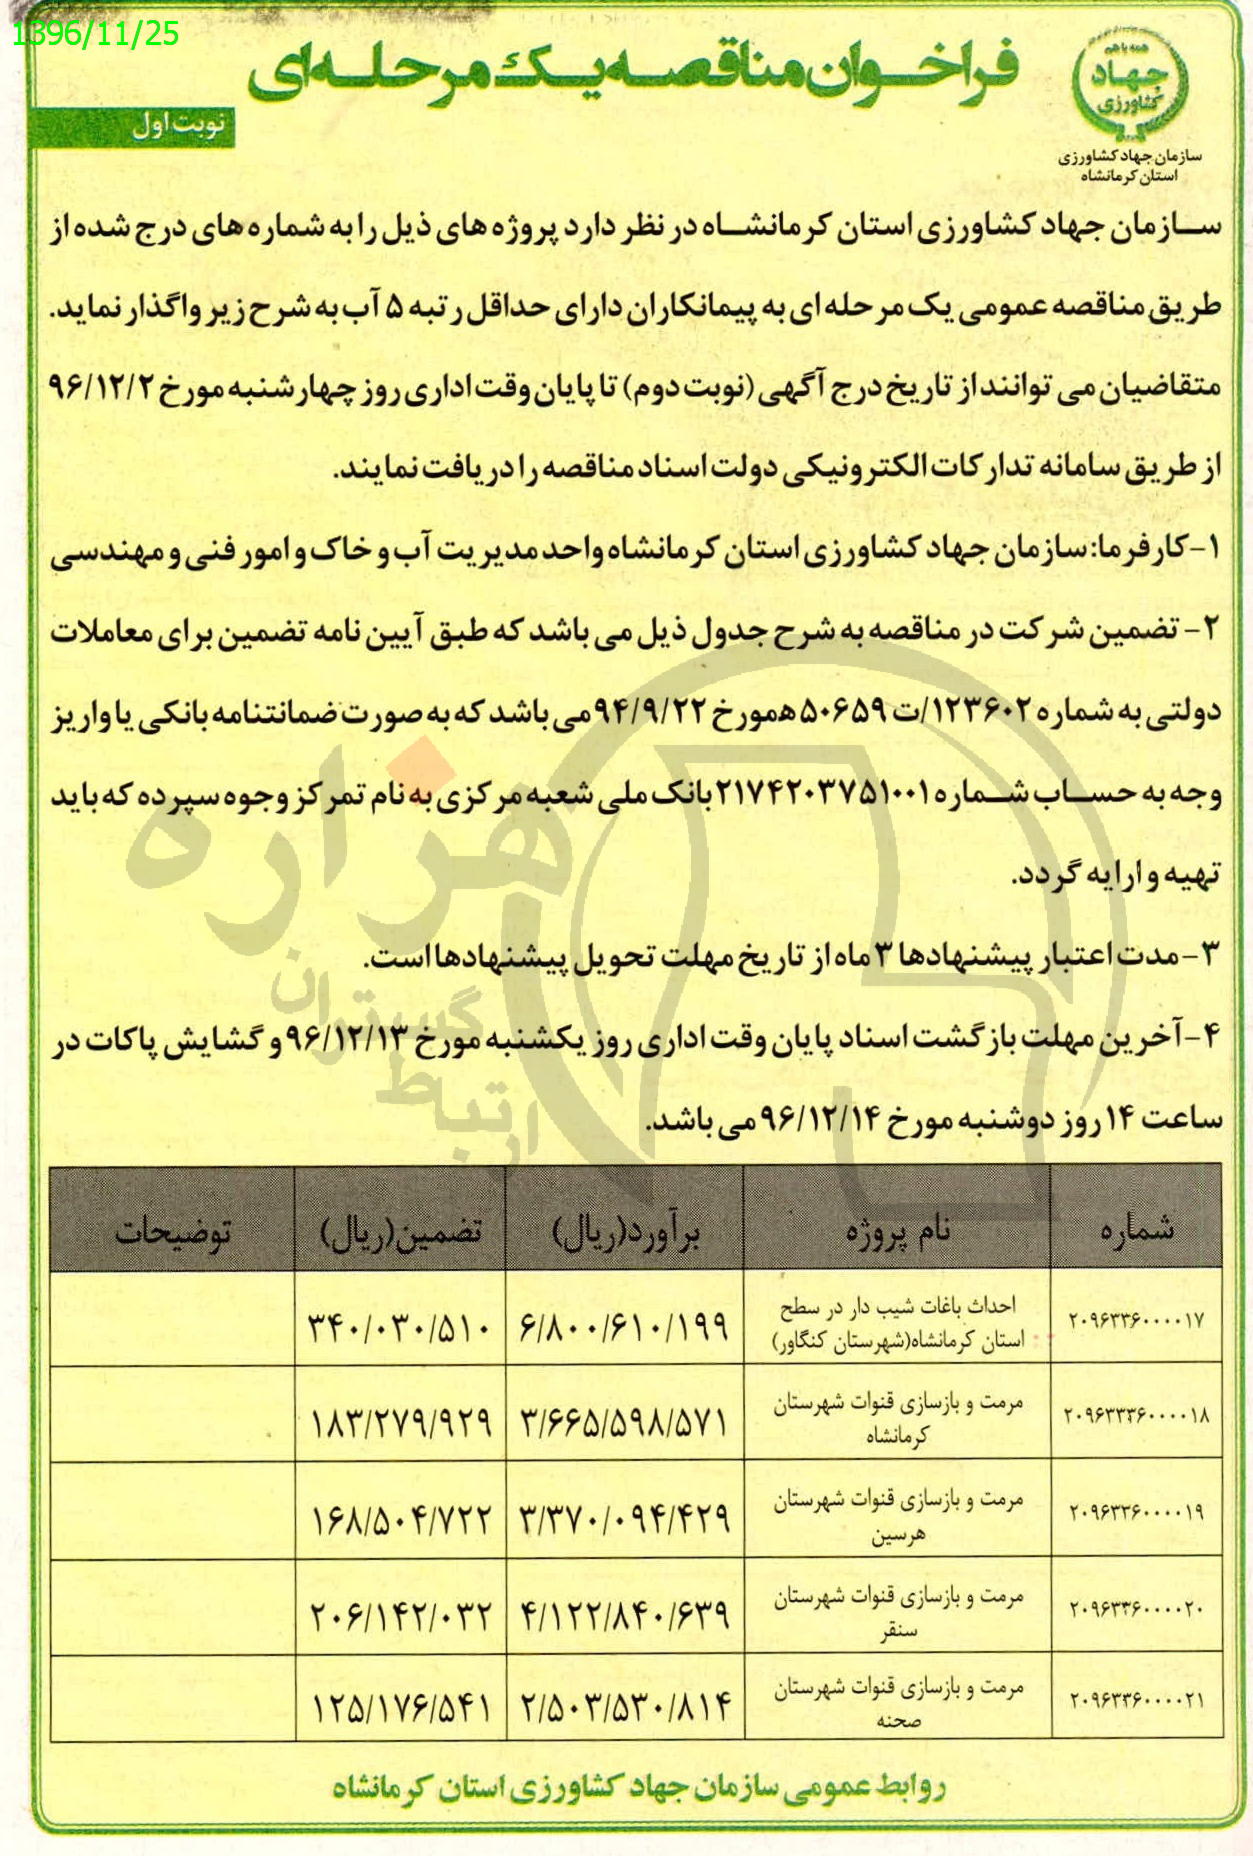 1396/11/25
همه با هم
جهاد
کشاورزی
فراخوان مناقصه یک مرحله‌ای
نوبت اول
سازمان جهاد کشاورزی
استان کرمانشاه
سازمان جهاد کشاورزی استان کرمانشاه در نظر دارد پروژه های ذیل را به شماره های درج شده از
طریق مناقصه عمومی یک مرحله ای به پیمانکاران دارای حداقل رتبه ۵ آب به شرح زیر واگذار نماید.
متقاضیان می توانند از تاریخ درج آگهی (نوبت دوم) تا پایان وقت اداری روز چهارشنبه مورخ ۹۶/۱۲/۲
از طریق سامانه تدارکات الکترونیکی دولت اسناد مناقصه را دریافت نمایند.
۱-کارفرما: سازمان جهاد کشاورزی استان کرمانشاه واحد مدیریت آب و خاک و امور فنی و مهندسی
۲- تضمین شرکت در مناقصه به شرح جدول ذیل می باشد که طبق آیین نامه تضمین برای معاملات
دولتی به شماره ۱۲۳۶۰۲/ت ۵۰۶۵۹ه مورخ ۹۴/۹/۲۲ می باشد که به صورت ضمانتنامه بانکی یا واریز
وجه به حساب شماره ۲۱۷۴۲۰۳۷۵۱۰۰۱ بانک ملی شعبه مرکزی به نام تمرکز وجوه سپرده که باید
تهیه و ارایه گردد.
۳-مدت اعتبار پیشنهادها ۳ ماه از تاریخ مهلت تحویل پیشنهادها است.
۴-آخرین مهلت بازگشت اسناد پایان وقت اداری روز یکشنبه مورخ ۹۶/۱۲/۱۳ و گشایش پاکات در
ساعت ۱۴ روز دوشنبه مورخ ۹۶/۱۲/۱۴ می باشد.
هزاره
گستران
ارتباط
شماره نام پروژه برآورد(ریال) تضمین(ریال) توضیحات
احداث باغات شیب دار در سطح
۲۰۹۶۳۳۶۰۰۰۰۱۷ استان کرمانشاه(شهرستان کنگاور) ۶/۸۰۰/۶۱۰/۱۹۹ ۳۴۰/۰۳۰/۵۱۰
مرمت و بازسازی قنوات شهرستان
۲۰۹۶۳۳۳۶۰۰۰۰۱۸ کرمانشاه ۳/۶۶۵/۵۹۸/۵۷۱ ۱۸۳/۲۷۹/۹۲۹
مرمت و بازسازی قنوات شهرستان
۲۰۹۶۳۳۶۰۰۰۰۱۹ هرسین ۳/۳۷۰/۰۹۴/۴۲۹ ۱۶۸/۵۰۴/۷۲۲
مرمت و بازسازی قنوات شهرستان
۲۰۹۶۳۳۶۰۰۰۰۲۰ سنقر ۴/۱۲۲/۸۴۰/۶۳۹ ۲۰۶/۱۴۲/۰۳۲
مرمت و بازسازی قنوات شهرستان
۲۰۹۶۳۳۶۰۰۰۰۲۱ صحنه ۲/۵۰۳/۵۳۰/۸۱۴ ۱۲۵/۱۷۶/۵۴۱
روابط عمومی سازمان جهاد کشاورزی استان کرمانشاه